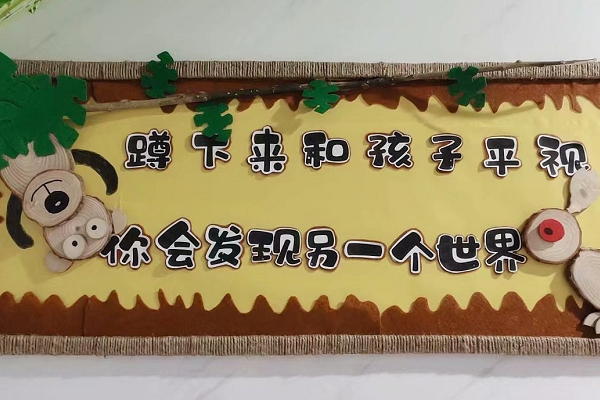 蹲下来和孩子平视
你会发现另一个世界